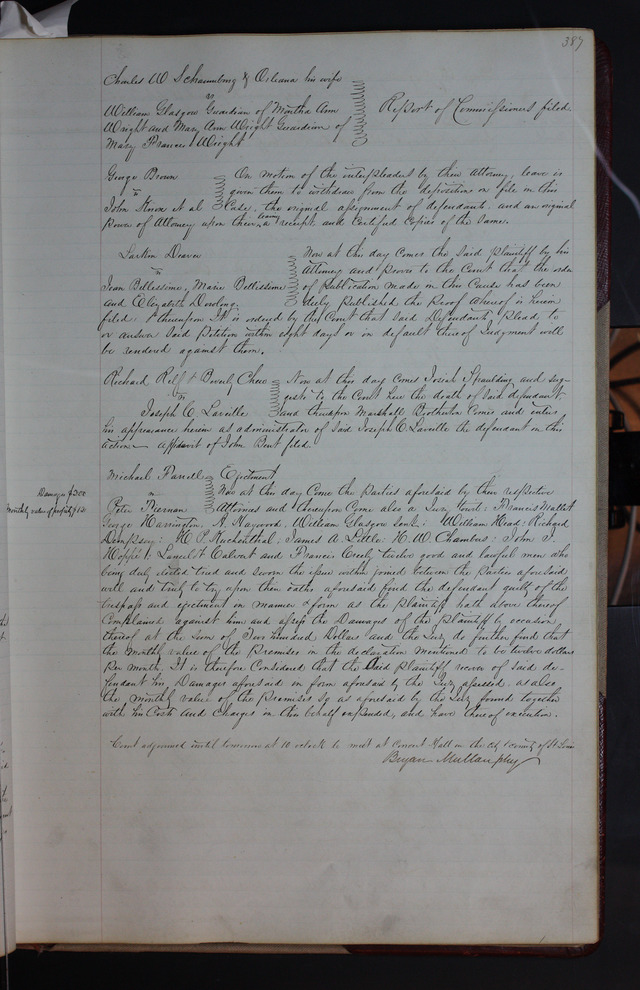 387
Charles W Schaumburg & Orleana his wife
vs
William Glasgow Guardian of Martha Ann
Wright and Mary Ann Wright Guardian of
Mary Frances Wright
Report of Commissioners filed
George Brown
vs
John Knox et al
On motion of the interpleaders by their attorney, leave is
given them to withdraw from the depositions on file in this
Case, the original assignment of defendants, and an original
Power of Attorney upon their leaving a receipt and Certified Copies of the same.
Larkin Deaver
vs
Jean Bellissime, Marie Bellissime
and Elizabeth Dowling
Now at this day comes the said plaintiff by his
Attorney and proves to the Court that the order
of publication made in this Cause has been
duly published the Proof whereof is herein
filed. & thereupon It is ordered by the Court that said Defendants plead to
or answer said Petition within eight days or in default thereof Judgment will
be rendered against them.
Richard Relf & Beverly Chew
vs
Joseph C. Laveille
Now at this day comes Josiah Spaulding and sug-
gests to the Court here the death of said defendant
and thereupon Marshall Brotherton Comes and enters
his appearance herein as administrator of said Joseph C. Laveille the defendant in this
action — affidavit of John Bent filed.
Damages $200
Monthly value of profits $12
Michael Farrell
vs
Peter Tiernan
Ejectment
Now at this day Come the Parties aforesaid by their respective
Attornies and thereupon Come also a Jury towit: Francis Mallet
George Harrington, A. Haywood, William Glasgow : William Head: Richard
Dempsey: H. P. : James A Little: H. W. Chambers: John T.
: Calvert and Francis Creely twelve good and lawful men who
being duly elected tried and sworn the issue within joined between the Parties aforesaid
well and truly to try upon their oaths aforesaid find the defendant guilty of the
trespass and ejectment in manner & form as the Plaintiff hath above thereof
Complained against him and assess the Damages of the plaintiff by occasion
thereof at the sum of Two hundred Dollars and the Jury do further find that
the monthly value of the Premises in the declaration mentioned to be twelve dollars
Per month. It is therefore Considered that the said Plaintiff recover of said de-
fendant his Damages aforesaid in form aforesaid by the Jury assessed, as also
the monthly value of the Premises so as aforesaid by the Jury found together
with his Costs and Charges in this behalf expended, and have thereof execution.
Court adjourned until tomorrow at 10 oclock to meet at Concert Hall in the City & County of St Louis
Bryan Mullanphy